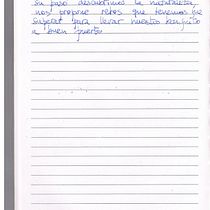 su paso descubrimos la naturaleza,
nos propone retos que tenemos que
superar para llevar nuestro barquito
a buen puerto.